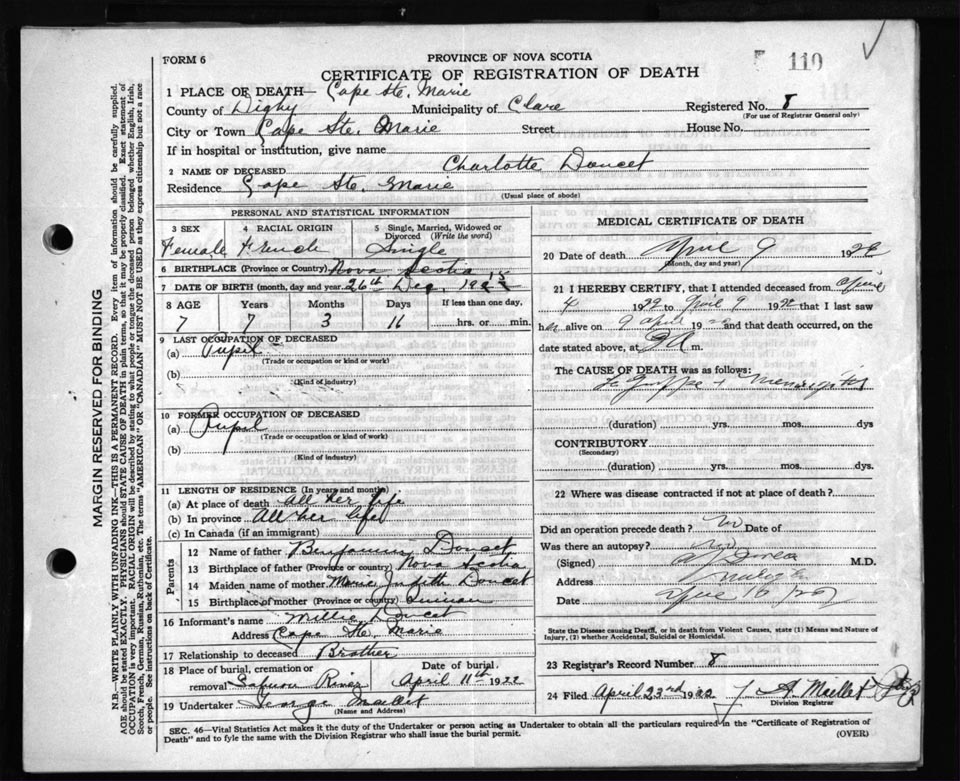 FORM 6
PROVINCE OF NOVA SCOTIA
110
CERTIFICATE OF REGISTRATION OF DEATH
1 PLACE OF DEATH— Cape Ste. Marie
County of Digby Municipality of Clare Registered No. 8
(For use of Registrar General only)
City or Town Cape Ste. Marie Street House No.
If in hospital or institution, give name
2 NAME OF DECEASED Charlotte Doucet
Residence Cape Ste. Marie
(Usual place of abode)
PERSONAL AND STATISTICAL INFORMATION
3 SEX 4 RACIAL ORIGIN 5 Single, Married, Widowed or Divorced (Write the word)
Female French Single
6 BIRTHPLACE (Province or Country) Nova Scotia
7 DATE OF BIRTH (month, day and year) 26th Dec. 19
8 AGE Years Months Days If less than one day,
7 7 3 11 hrs. or min.
9 LAST OCCUPATION OF DECEASED
(a) Pupil
(Trade or occupation or kind of work)
(b)
(Kind of industry)
10 FORMER OCCUPATION OF DECEASED
(a) Pupil
(Trade or occupation or kind of work)
(b)
(Kind of industry)
11 LENGTH OF RESIDENCE (In years and months)
(a) At place of death All her life
(b) In province All her life
(c) In Canada (if an immigrant)
Parents
12 Name of father Benjamin Doucet
13 Birthplace of father (Province or country) Nova Scotia
14 Maiden name of mother Marie Judith Doucet
15 Birthplace of mother (Province or country)
16 Informant's name Doucet
Address Cape Ste. Marie
17 Relationship to deceased Brother
18 Place of burial, cremation or removal Salmon River
Date of burial, April 11th 1922
19 Undertaker George Maillet
(Name and Address)
MEDICAL CERTIFICATE OF DEATH
20 Date of death April 9 192
(Month, day and year)
21 I HEREBY CERTIFY, that I attended deceased from April
4 1922 to April 9 192 that I last saw
her alive on 9 April 19 and that death occurred, on the
date stated above, at m.
The CAUSE OF DEATH was as follows:
La Grippe + Meningitis
(duration) yrs. mos. dys
CONTRIBUTORY
(Secondary)
(duration) yrs. mos. dys.
22 Where was disease contracted if not at place of death?
Did an operation precede death? no Date of
Was there an autopsy? no
(Signed) M.D.
Address
Date
State the Disease causing Death, or in death from Violent Causes, state (1) Means and Nature of
Injury, (2) whether Accidental, Suicidal or Homicidal.
23 Registrar's Record Number 8
24 Filed April 23rd 1922 A. Maillet
Division Registrar
SEC. 46—Vital Statistics Act makes it the duty of the Undertaker or person acting as Undertaker to obtain all the particulars required in the "Certificate of Registration of
Death" and to fyle the same with the Division Registrar who shall issue the burial permit.
(OVER)
MARGIN RESERVED FOR BINDING
N.B.—WRITE PLAINLY WITH UNFADING INK—THIS IS A PERMANENT RECORD. Every item of information should be carefully supplied.
AGE should be stated EXACTLY. PHYSICIANS should STATE CAUSE OF DEATH in plain terms, so that it may be properly classified. Exact statement of
OCCUPATION is very important. RACIAL ORIGIN will be described by stating to what people or tongue the deceased person belonged whether English, Irish,
Scotch, French, German, Russian, Ruthenian, etc. The terms "AMERICAN" OR "CANADIAN" MUST NOT BE USED as they express citizenship but not a race
or people. See instructions on back of Certificate.